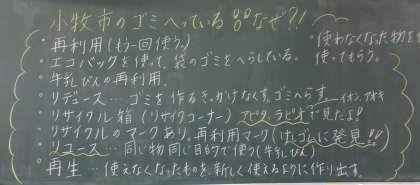 小牧市のゴミへっている なぜ?!
・再利用(もう一回使う。)
・使わなくなった物を使ってもらう。
・エコバックを使って、袋のゴミをへらしている。
・牛乳びんの再利用。
・リデュース…ゴミを作るきっかけなくす。ゴミへらす
イオン、アオキ
・リサイクル箱(リサイクルコーナー)アピタ、ラピオで見たよ!
・リサイクルのマークあり。再利用マーク(けしゴムに発見!!)
・リユース…同じ物同じ目的で使う(牛乳びん)
・再生…使えなくなったものを、新しく使えるように作り出す。